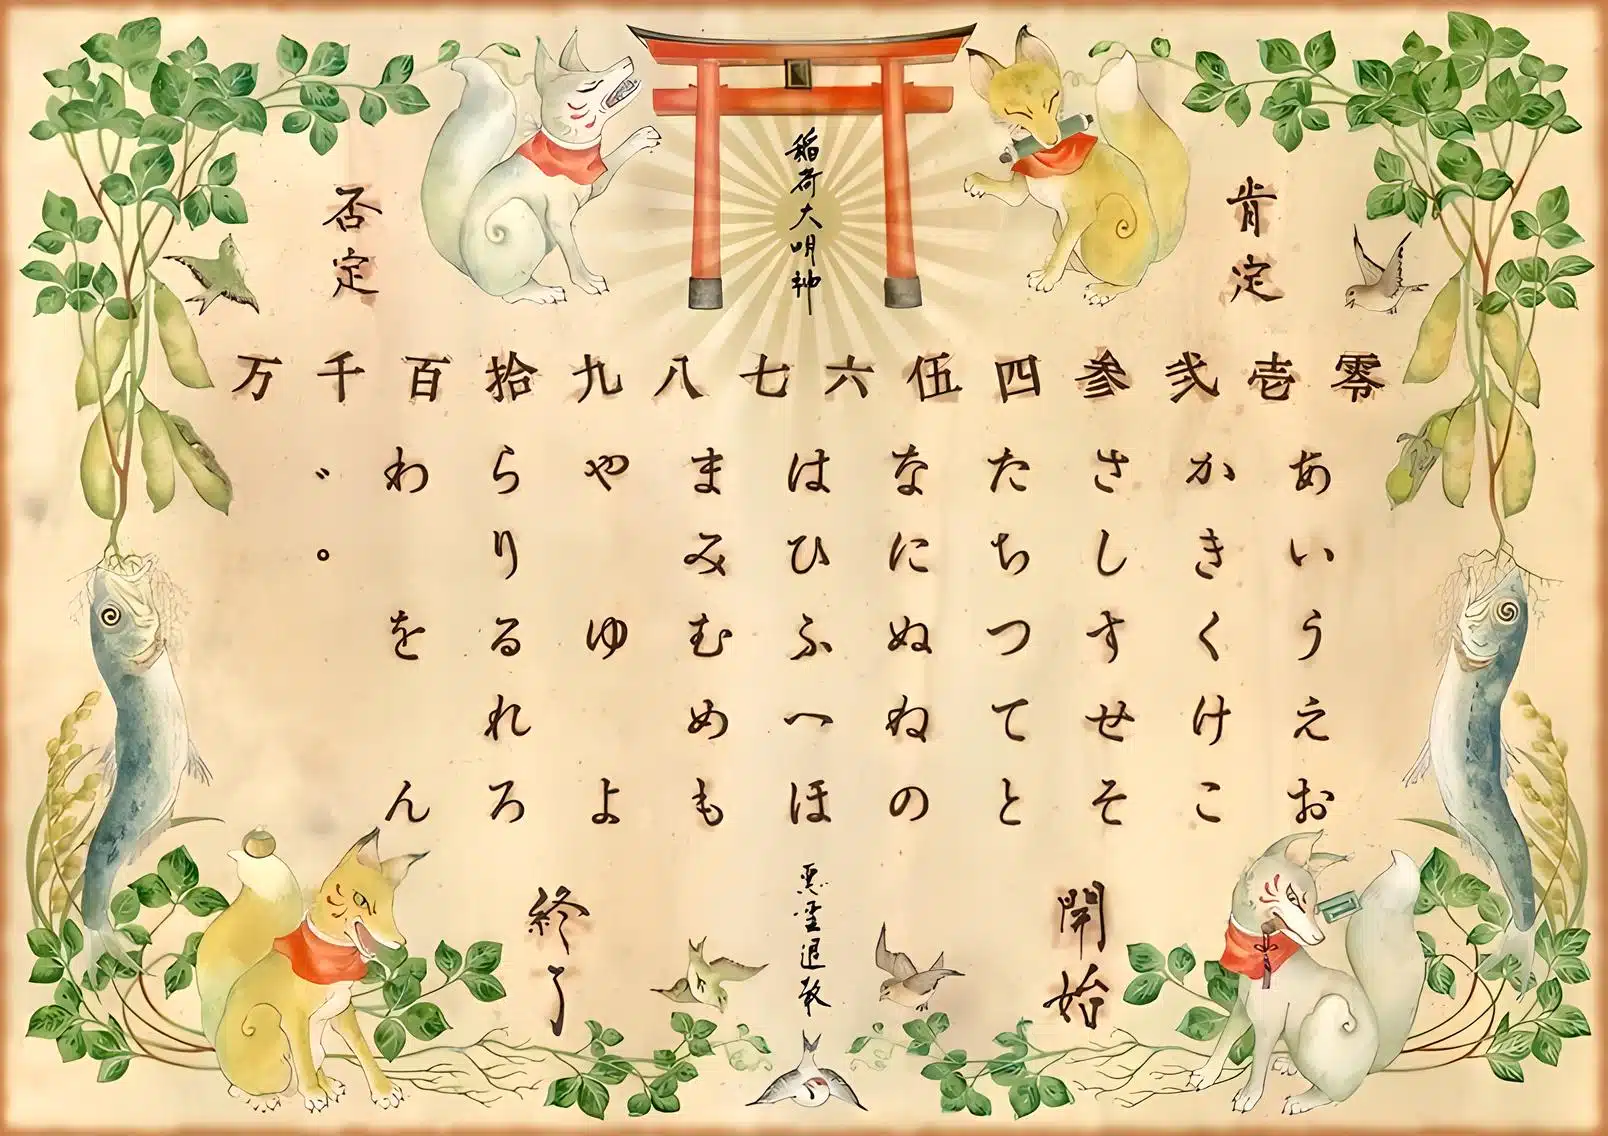 稲荷大明神
肯定
否定
零壱弐参四伍六七八九拾百千万
あいうえお
かきくけこ
さしすせそ
たちつてと
なにぬねの
はひふへほ
まみむめも
やゆよ
らりるれろ
わをん
゛。
開始
悪霊退散
終了